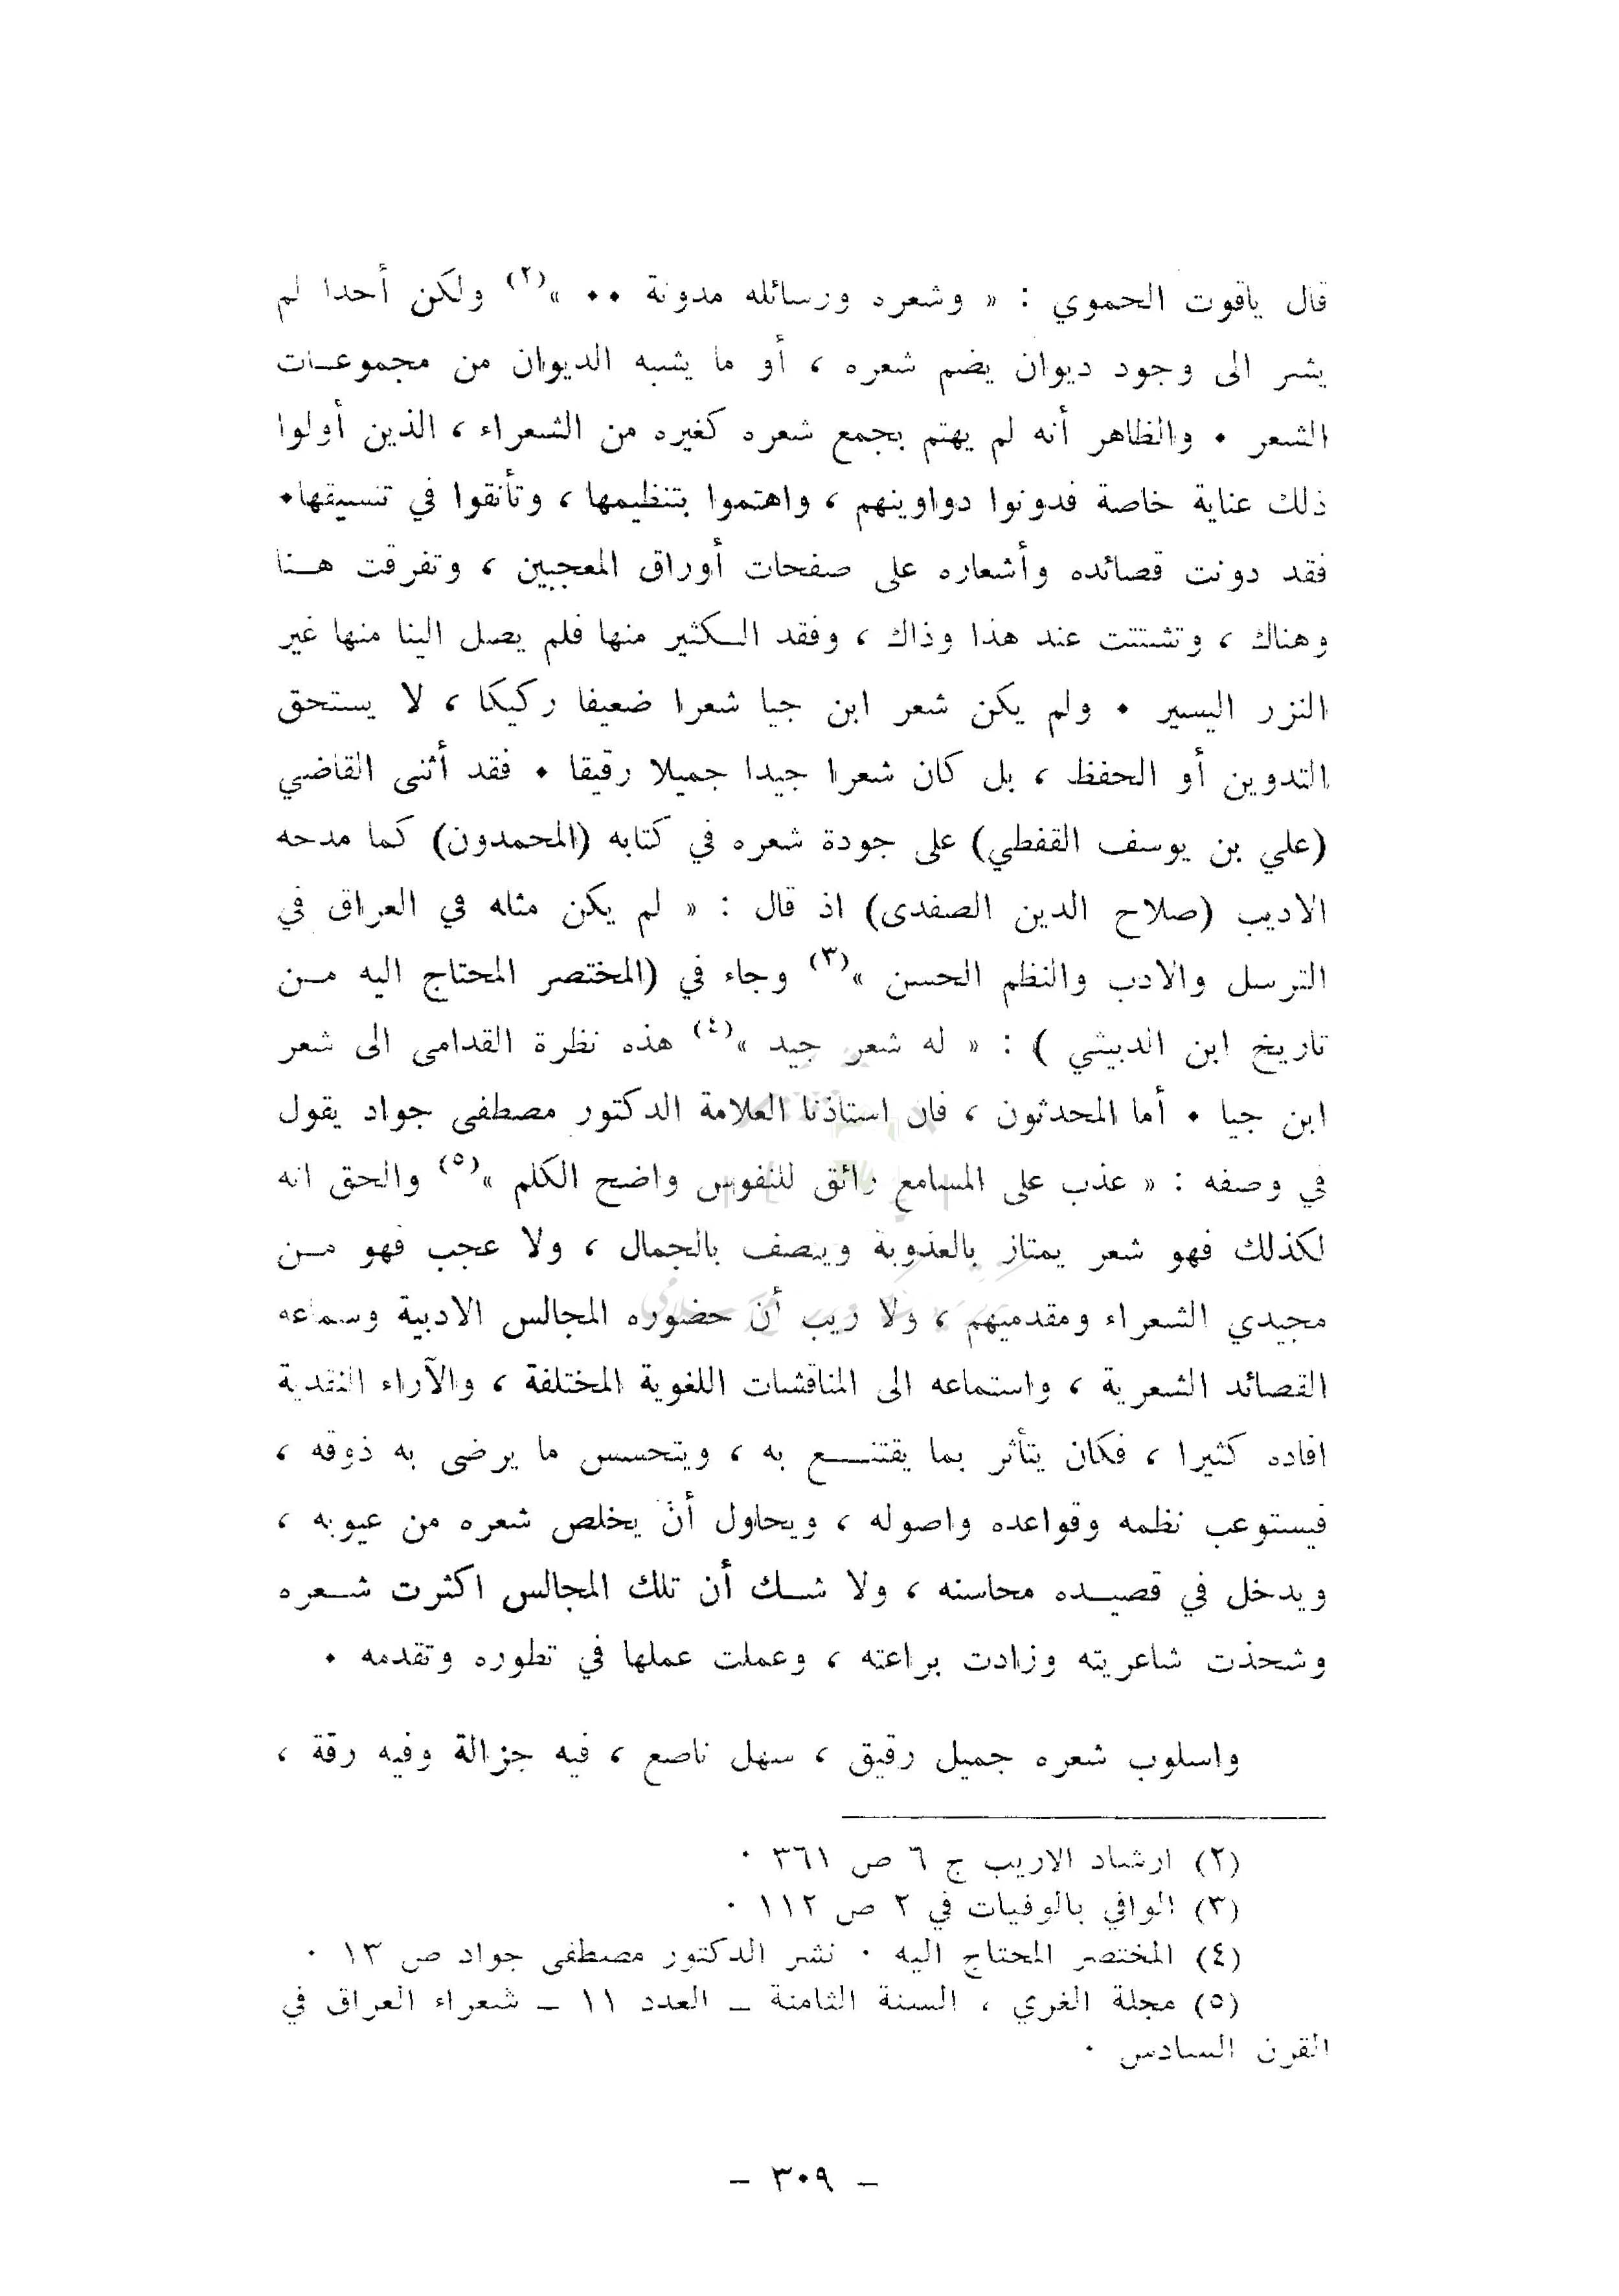 قال ياقوت الحموي : « وشعره ورسائله مدونة ٠٠ »(٢) ولكن أحدا لم
يشر الى وجود ديوان يضم شعره ، أو ما يشبه الديوان من مجموعـات
الشعر ٠ والظاهر أنه لم يهتم بجمع شعره كغيره من الشعراء ، الذين أولوا
ذلك عناية خاصة فدونوا دواوينهم ، واهتموا بتنظيمها ، وتأنقوا في تنسيقها٠
فقد دونت قصائده وأشعاره على صفحات أوراق المعجبين ، وتفرقت هـنا
وهناك ، وتشتتت عند هذا وذاك ، وفقد الـكثير منها فلم يصل الينا منها غير
النزر اليسير ٠ ولم يكن شعر ابن جيا شعرا ضعيفا ركيكا ، لا يستحق
التدوين أو الحفظ ، بل كان شعرا جيدا جميلا رقيقا ٠ فقد أثنى القاضي
(علي بن يوسف القفطي) على جودة شعره في كتابه (المحمدون) كما مدحه
الاديب (صلاح الدين الصفدى) اذ قال : « لم يكن مثله في العراق في
الترسل والادب والنظم الحسن »(٣) وجاء في (المختصر المحتاج اليه مـن
تاريخ ابن الدبيثي ) : « له شعر جيد »(٤) هذه نظرة القدامى الى شعر
ابن جيا ٠ أما المحدثون ، فان استاذنا العلامة الدكتور مصطفى جواد يقول
في وصفه : « عذب على المسامع رائق للنفوس واضح الكلم »(٥) والحق انه
لكذلك فهو شعر يمتاز بالعذوبة ويتصف بالجمال ، ولا عجب فهو مـن
مجيدي الشعراء ومقدميهم ، ولا ريب أن حضوره المجالس الادبية وسماعه
القصائد الشعرية ، واستماعه الى المناقشات اللغوية المختلفة ، والآراء النقدية
افاده كثيرا ، فكان يتأثر بما يقتنـــع به ، ويتحسس ما يرضى به ذوقه ،
فيستوعب نظمه وقواعده واصوله ، ويحاول أن يخلص شعره من عيوبه ،
ويدخل في قصيـده محاسنه ، ولا شـك أن تلك المجالس اكثرت شـعره
وشحذت شاعريته وزادت براعته ، وعملت عملها في تطوره وتقدمه ٠
واسلوب شعره جميل رقيق ، سهل ناصع ، فيه جزالة وفيه رقة ،
(٢) ارشاد الاريب ج ٦ ص ٣٦١ ٠
(٣) الوافي بالوفيات في ٢ ص ١١٢ ٠
(٤) المختصر المحتاج اليه ٠ نشر الدكتور مصطفى جواد ص ١٣ ٠
(٥) مجلة الغري ، السنة الثامنة ـ العدد ١١ ـ شعراء العراق في
القرن السادس ٠
ـ ٣٠٩ ـ